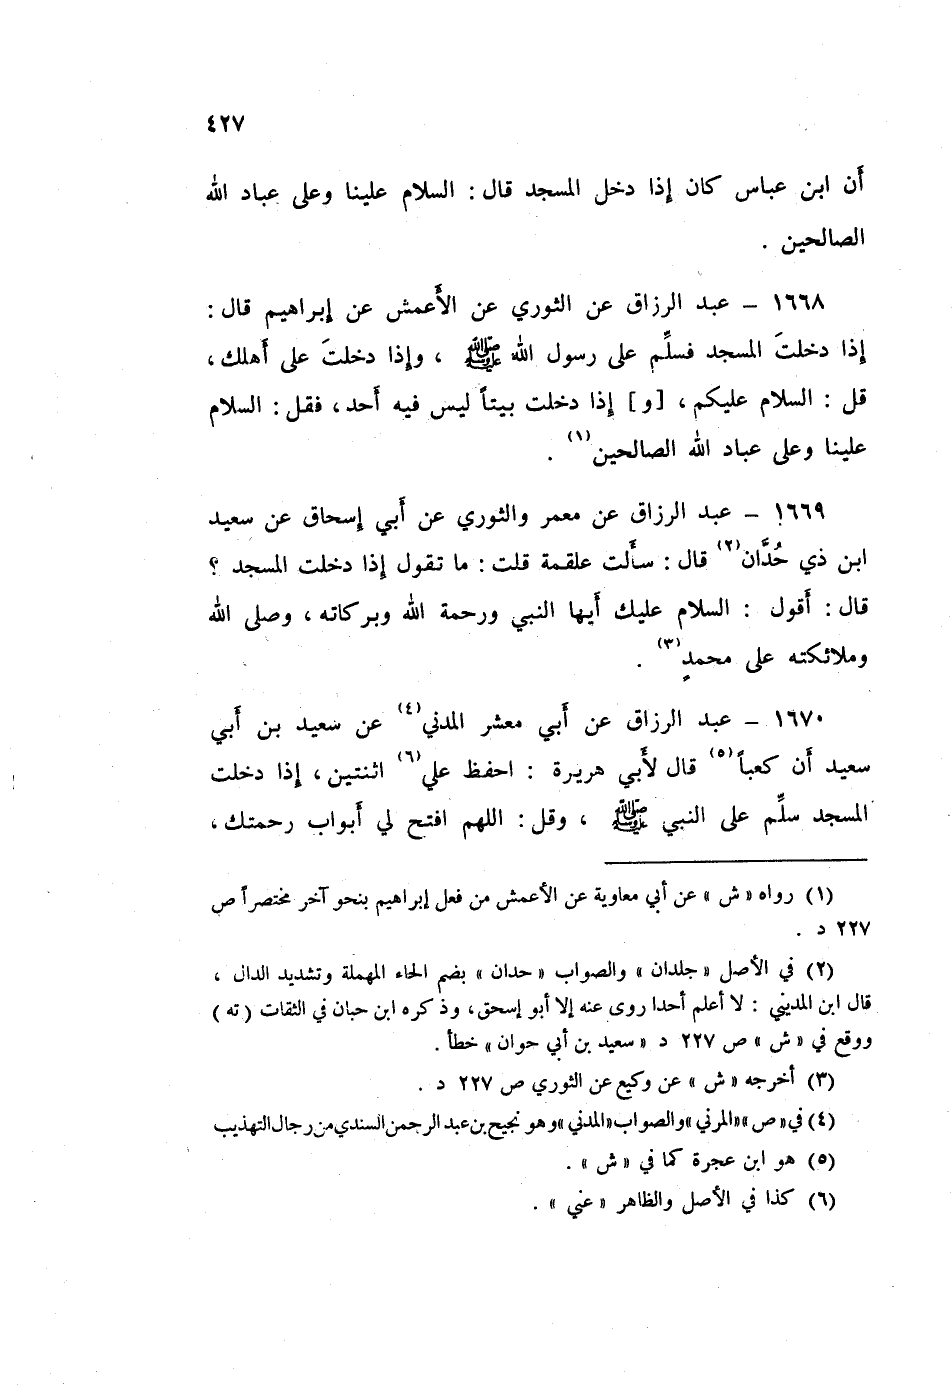 ٤٢٧
أن ابن عباس كان إذا دخل المسجد قال : السلام علينا وعلى عباد الله
الصالحين .
١٦٦٨ – عبد الرزاق عن الثوري عن الأعمش عن إبراهيم قال :
إذا دخلتَ المسجد فسلِّم على رسول الله ﷺ ، وإذا دخلتَ على أهلك ،
قل : السلام عليكم ، [ و ] إذا دخلت بيتاً ليس فيه أحد ، فقل : السلام
علينا وعلى عباد الله الصالحين(١) .
١٦٦٩ – عبد الرزاق عن معمر والثوري عن أبي إسحاق عن سعيد
ابن ذي حُدَّان(٢) قال : سألت علقمة قلت : ما تقول إذا دخلت المسجد ؟
قال : أقول : السلام عليك أيها النبي ورحمة الله وبركاته ، وصلى الله
وملائكته على محمدٍ(٣) .
١٦٧٠ – عبد الرزاق عن أبي معشر المدني(٤) عن سعيد بن أبي
سعيد أن كعباً(٥) قال لأبي هريرة : احفظ علي(٦) اثنتين ، إذا دخلت
المسجد سلِّم على النبي ﷺ ، وقل : اللهم افتح لي أبواب رحمتك ،
(١) رواه « ش » عن أبي معاوية عن الأعمش من فعل إبراهيم بنحو آخر مختصراً ص
٢٢٧ د .
(٢) في الأصل « جلدان » والصواب « حدان » بضم الحاء المهملة وتشديد الدال ،
قال ابن المديني : لا أعلم أحدا روى عنه إلا أبو إسحق ، وذكره ابن حبان في الثقات ( ته )
ووقع في « ش » ص ٢٢٧ د « سعيد بن أبي حوان » خطأ .
(٣) أخرجه « ش » عن وكيع عن الثوري ص ٢٢٧ د .
(٤) في « ص » « المرني » والصواب « المدني » وهو نجيح بن عبد الرحمن السندي من رجال التهذيب
(٥) هو ابن عجرة كما في « ش » .
(٦) كذا في الأصل والظاهر « عني » .